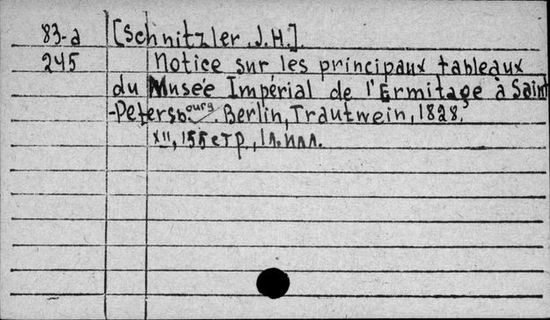 83-a [Schnitzler, J.H.].
245 Notice sur les principaux tableaux
du Musée Impérial de l'Ermitage à Saint
-Petersbourg. Berlin, Trautwein, 1828.
XII, 155 стр., 1 л. илл.